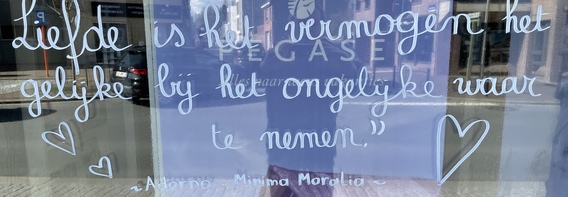 Liefde is het vermogen het
PEGASE
gelijke bij het ongelijke waar
te nemen."
~ Adorno - Minima Moralia ~